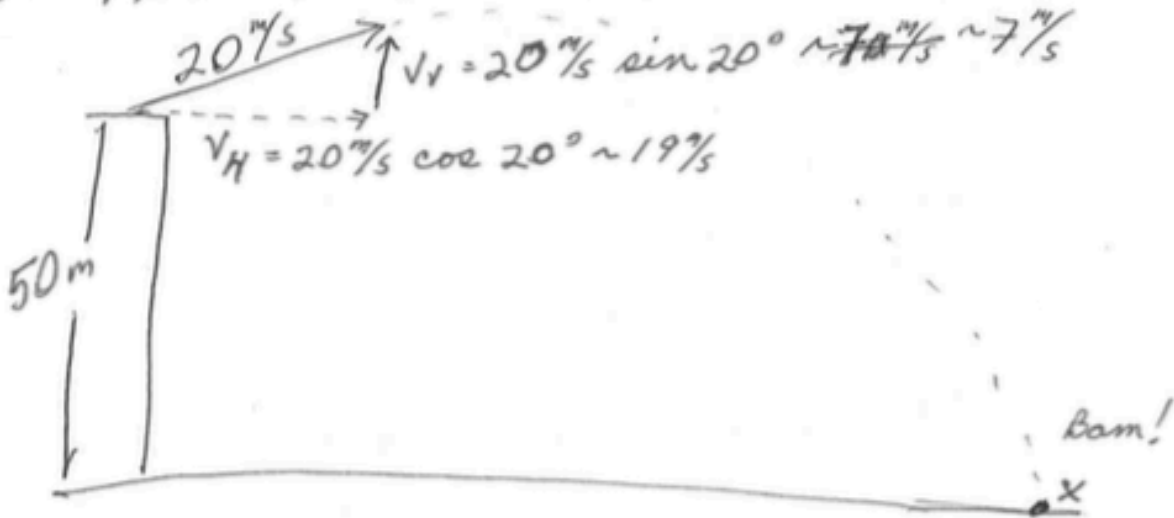 20 m/s
V_V = 20 m/s sin 20° ~ ~ 7 m/s
V_H = 20 m/s cos 20° ~ 19 m/s
50 m
Bam!
x